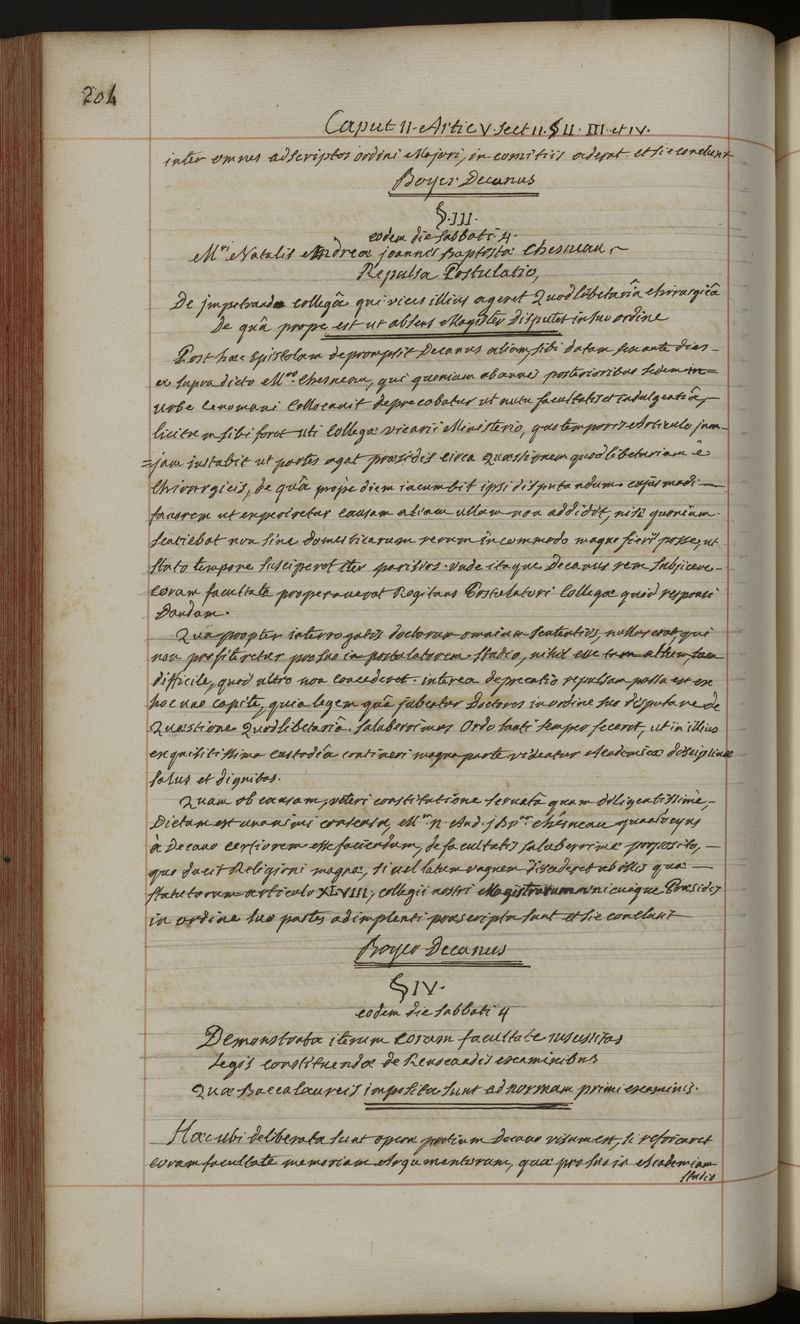 204
Caput II. Artic V. Sect II. § II. III. et IV.
inter omnes adscriptos ordini Majori, in comitiis aderat. et sic conclusit
Boyer Decanus
§. III.
eodem die sabbati 4.
M.ri Natalis Andreæ joannis Baptistæ Chesneau
Repulsa Postulatio,
De jmpetrando collegâ qui vices illius ageret Quodlibetariâ chirurgicâ
De quâ prope est ut absens Magister disputet in suo ordine
Post hac Epistolam deprompsit Decanus aliam, sibi datam sex ante dies
ex supradicto M.ro Chesneau, qui quoniam ab annis posterioribus sedem in
urbe Cenomani collocavit deprecabatur ut nutu facultatis et indulgentiâ,
licitum sibi foret uti Collegæ vicarii Ministerio, quo temporis Articulo jam
=jam instabit ut partes agat præsidis circa quæstionem quodlibetariam è
Chirurgicis, de quâ propè diem incumbit ipsi disputandum. cujusmodi
favorem ut experiretur causam aliam ullam non addidit, nisi quoniam
sentiebat non sine domesticarum rerum incommodo magno fieri posse, ut
stato tempore susciperet iter parisios. unde itaque Decanus rem subjicere
coram facultate properaverat Rogitans Postulaturi Collegæ quid responsi
Dandum.
Quâ propter interrogatis doctorum omnium sententiis, nullus erat, qui
non profiteretur pro suo in postulatorem studio, nihil esse tam
difficile, quod ultro non concederet. interea deprecatio repulsam passa est ex
hoc uno capite, quia legem quâ jubentur Doctores in ordine suo disputare de
Quæstione Quodlibetariâ. saluberrimus Ordo tanti semper fecerat, ut in illius
exquisitissima custodiâ contineri magna parte videatur Academicæ disciplinæ
salus et dignitas.
Quam ob causam, veteri constitutione servatâ quam diligentissimè,
Dictum est unanimi consensu, M.rum N. And. j. B.p.am chesneau
à Decano certiorem esse faciendum, de facultatis saluberrimæ proposito,
quo ducit Religioni magnæ, si vel latum unguem discederet ab illis quæ
statutorum articulo XLVIII, collegii nostri Magistrorum unicuique Præsidis
in ordine suo partes adimplenti præscripta sunt et sic conclusit
Boyer Decanus
§ IV.
eodem die sabbati 4
Demonstrata iterum coram facultate necessitas
Legis constituendæ de Revocandis examinibus
Quæ Baccalaureis imposita sunt ad normam primi examinis.
Hæc ubi deliberata sunt operæ pretium Decano visum est, si refricaret
coram facultate memoriam Argumentorum, quæ pro suo in Academiam
studio